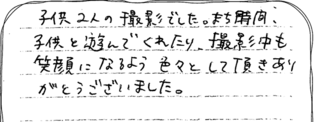 子供2人の撮影でした。まち時間、
子供と遊んでくれたり、撮影中も
笑顔になるよう色々として頂きあり
がとうございました。